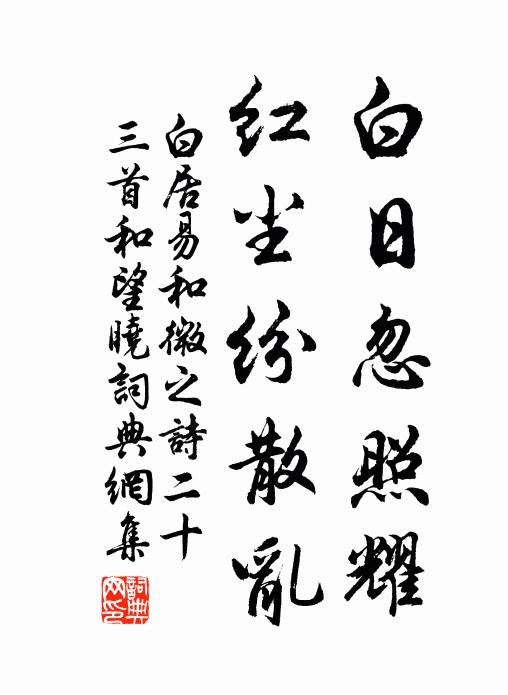 白日忽照耀
红尘纷散亂
白居易和微之詩二十
三首和望曉詞典網集
詞典网印